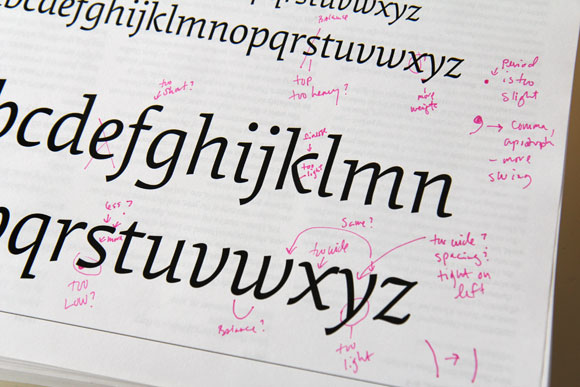 bcdefghijklmnopqrstuvwxyz
Balance
lmnopqrstuvwxyz
too
short?
top
too heavy?
more
weight
period
is too
slight
comma,
- more
swing
bcdefghijklmn
too
light
less?
more
pqrstuvwxyz
Same?
too wide
too wide?
spacing?
tight on
left
too
low?
Balance?
too
light